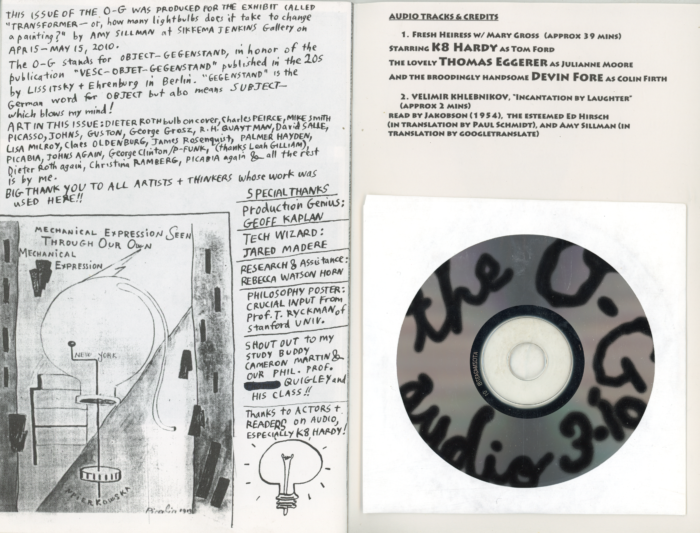 THIS ISSUE OF THE O-G WAS PRODUCED FOR THE EXHIBIT CALLED
"TRANSFORMER—or, how many lightbulbs does it take to change
a painting?" by AMY SILLMAN at SIKKEMA JENKINS Gallery on
APR 15 – MAY 15, 2010.
The O-G stands for OBJECT-GEGENSTAND, in honor of the
publication "VESC-OBJET-GEGENSTAND" published in the 20s
by LISSITSKY + Ehrenburg in Berlin. "GEGENSTAND" is the
German word for OBJECT but also means SUBJECT—
which blows my mind!
ART IN THIS ISSUE: DIETER ROTH bulb on cover, Charles PEIRCE, MIKE SMITH
PICASSO, JOHNS, GUSTON, George GROSZ, R.H. QUAYTMAN, David SALLE,
LISA MILROY, Claes OLDENBURG, James Rosenquist, PALMER HAYDEN,
PICABIA, JOHNS AGAIN, George Clinton/P-FUNK, (thanks Leah GILLIAM),
Dieter Roth again, Christina RAMBERG, PICABIA again & all the rest
is by me.
BIG THANK YOU TO ALL ARTISTS + THINKERS whose work was
USED HERE!!
MECHANICAL EXPRESSION SEEN
THROUGH OUR OWN
MECHANICAL
EXPRESSION
NEW YORK
NPIERKOWSKA
SPECIAL THANKS
Production Genius:
GEOFF KAPLAN
TECH WIZARD:
JARED MADERE
RESEARCH & Assistance:
REBECCA WATSON HORN
PHILOSOPHY POSTER:
CRUCIAL INPUT FROM
Prof. T. RYCKMAN of
Stanford UNIV.
SHOUT OUT TO MY
STUDY BUDDY
CAMERON MARTIN &
OUR PHIL. PROF.
QUIGLEY and
HIS CLASS!!
Thanks to ACTORS +
READERS ON AUDIO,
ESPECIALLY K8 HARDY!
AUDIO TRACKS & CREDITS
1. FRESH HEIRESS W/ MARY GROSS (APPROX 39 MINS)
STARRING K8 HARDY AS TOM FORD
THE LOVELY THOMAS EGGERER AS JULIANNE MOORE
AND THE BROODINGLY HANDSOME DEVIN FORE AS COLIN FIRTH
2. VELIMIR KHLEBNIKOV, "INCANTATION BY LAUGHTER"
(APPROX 2 MINS)
READ BY JAKOBSON (1954), THE ESTEEMED ED HIRSCH
(IN TRANSLATION BY PAUL SCHMIDT), AND AMY SILLMAN (IN
TRANSLATION BY GOOGLETRANSLATE)
the O-G
audio 3-10